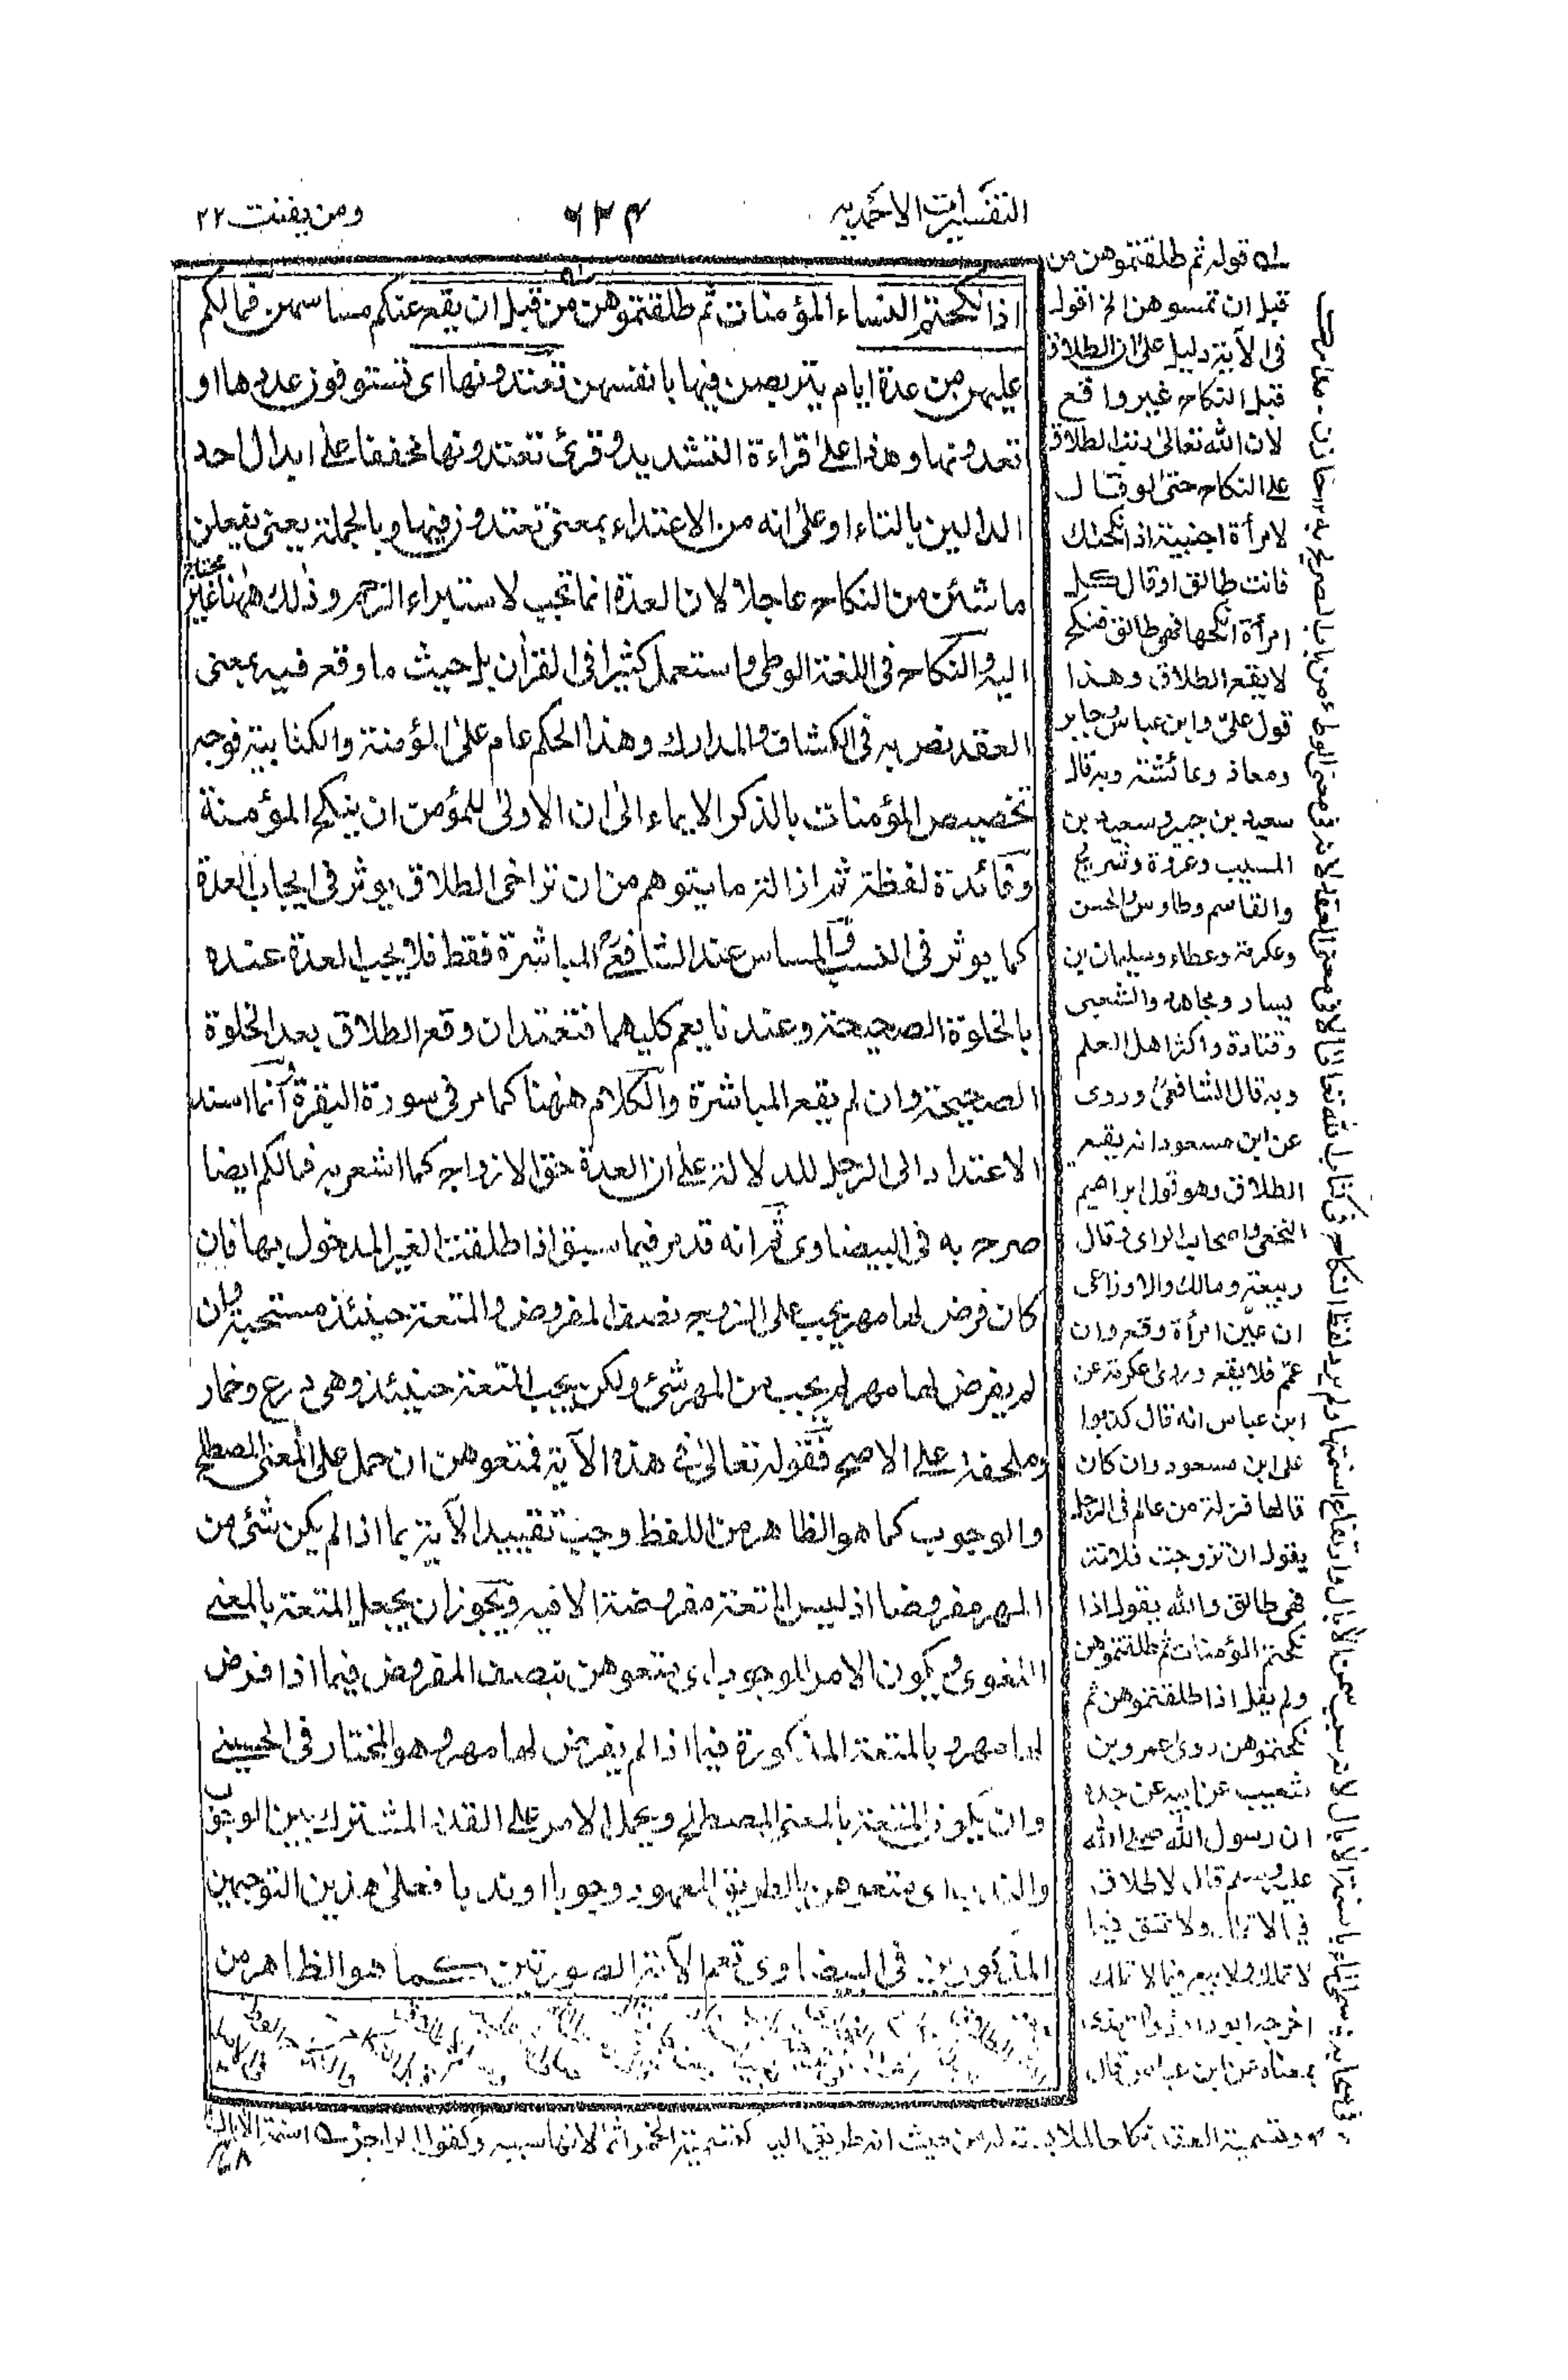 التفسيرات الاحمديه
٦٢٤
ومن يقنت ٢٢
اذا نكحتم النساء المؤمنات ثم طلقتموهن من قبل ان يقع عنكم مساسهن فمالكم
عليهن من عدة ايام يتربصن فيها بانفسهن تعتدونها اى تستوفون عددها او
تعدونها وهذا على قراءة التشديد وقرئ تعتدونها مخففا على ابدال احد
الدالين بالتاء او على انه من الاعتداء بمعنى تعتدون فيها وبالجملة يعنى يفعلن
ما شئن من النكاح عاجلا لان العدة انما تجب لاستبراء الرحم وذلك ههنا غير محتاج
اليه والنكاح فى اللغة الوطى واستعمل كثيرا فى القرأن بل حيث ما وقع فيه بمعنى
العقد نص به فى الكشاف والمدارك وهذا الحكم عام على المؤمنة والكتابية فوجه
تخصيص المؤمنات بالذكر الايماء الى ان الاولى للمؤمن ان ينكح المؤمنة
وفائدة لفظة ثم ازالة ما يتوهم من ان تراخى الطلاق يوثر فى ايجاب العدة
كما يوثر فى النسب والمساس عند الشافعى المباشرة فقط فلا يجب العدة عنده
بالخلوة الصحيحة وعندنا يعم كليهما فتعتد ان وقع الطلاق بعد الخلوة
الصحيحة وان لم يقع المباشرة والكلام ههنا كما مر فى سورة البقرة وانما اسند
الاعتداد الى الرجل للدلالة على ان العدة حق الازواج كما اشعر به فمالكم ايضا
صرح به فى البيضاوى ثم انه قد مر فيما سبق اذا طلقت الغير المدخول بها فان
كان فرض لها مهر يجب على الزوج نصف المفروض والمتعة حينئذ مستحبة وان
لم يفرض لها مهر لم يجب من المهر شئ ولكن يجب المتعة حينئذ وهى درع وخمار
وملحفة على الاصح فقوله تعالى فى هذه الآية فمتعوهن ان حمل على المعنى المصطلح
والوجوب كما هو الظاهر من اللفظ وجب تقييد الآية بما اذا لم يكن شئ من
المهر مفروضا اذ ليس المتعة مفروضة الا فيه ويجوز ان يجعل المتعة بالمعنى
اللغوى ويكون الامر للوجوب اى متعوهن بنصف المفروض فيما اذا فرض
لها مهر وبالمتعة المذكورة فيما اذا لم يفرض لها مهر وهو المختار فى الحسينى
وان يكون المتعة بالمعنى المصطلح ويحمل الامر على القدر المشترك بين الوجوب
والندب اى متعوهن بالطريق المعهود وجوبا او ندبا فعلى هذين التوجيهين
المذكورين فى البيضاوى تعم الآية الصورتين كما هو الظاهر من
له قوله ثم طلقتموهن من
قبل ان تمسوهن الخ اقول
فى الآية دليل على ان الطلاق
قبل النكاح غير واقع
لان الله تعالى رتب الطلاق
على النكاح حتى لو قال
لامرأة اجنبية اذا نكحتك
فانت طالق او قال كل
امرأة انكحها فهى طالق فنكح
لا يقع الطلاق وهذا
قول على وابن عباس وجابر
ومعاذ وعائشة وبه قال
سعيد بن جبير وسعيد بن
المسيب وعروة وشريح
والقاسم وطاوس والحسن
وعكرمة وعطاء وسليمان بن
يسار ومجاهد والشعبى
وقتادة واكثر اهل العلم
وبه قال الشافعى وروى
عن ابن مسعود انه يقع
الطلاق وهو قول ابراهيم
النخعى واصحاب الراى وقال
ربيعة ومالك والاوزاعى
ان عين امرأة وقع وان
عمم فلا يقع وروى عكرمة عن
ابن عباس انه قال كذبوا
على ابن مسعود وان كان
قالها فزلة من عالم فى الرجل
يقول ان تزوجت فلانة
فهى طالق والله يقول اذا
نكحتم المؤمنات ثم طلقتموهن
ولم يقل اذا طلقتموهن ثم
نكحتموهن روى عمرو بن
شعيب عن ابيه عن جده
ان رسول الله صلى الله
عليه وسلم قال لا طلاق
فيما لا تملك ولا عتق فيما
لا تملك ولا بيع فيما لا تملك
اخرجه ابو داود والترمذى
بمعناه عن ابن عباس قال
وتسمية العقد نكاحا لملابسته له من حيث انه طريق اليه كتسمية الخمر اثما لانها سببه وكقول الراجز اسنمة الآبال